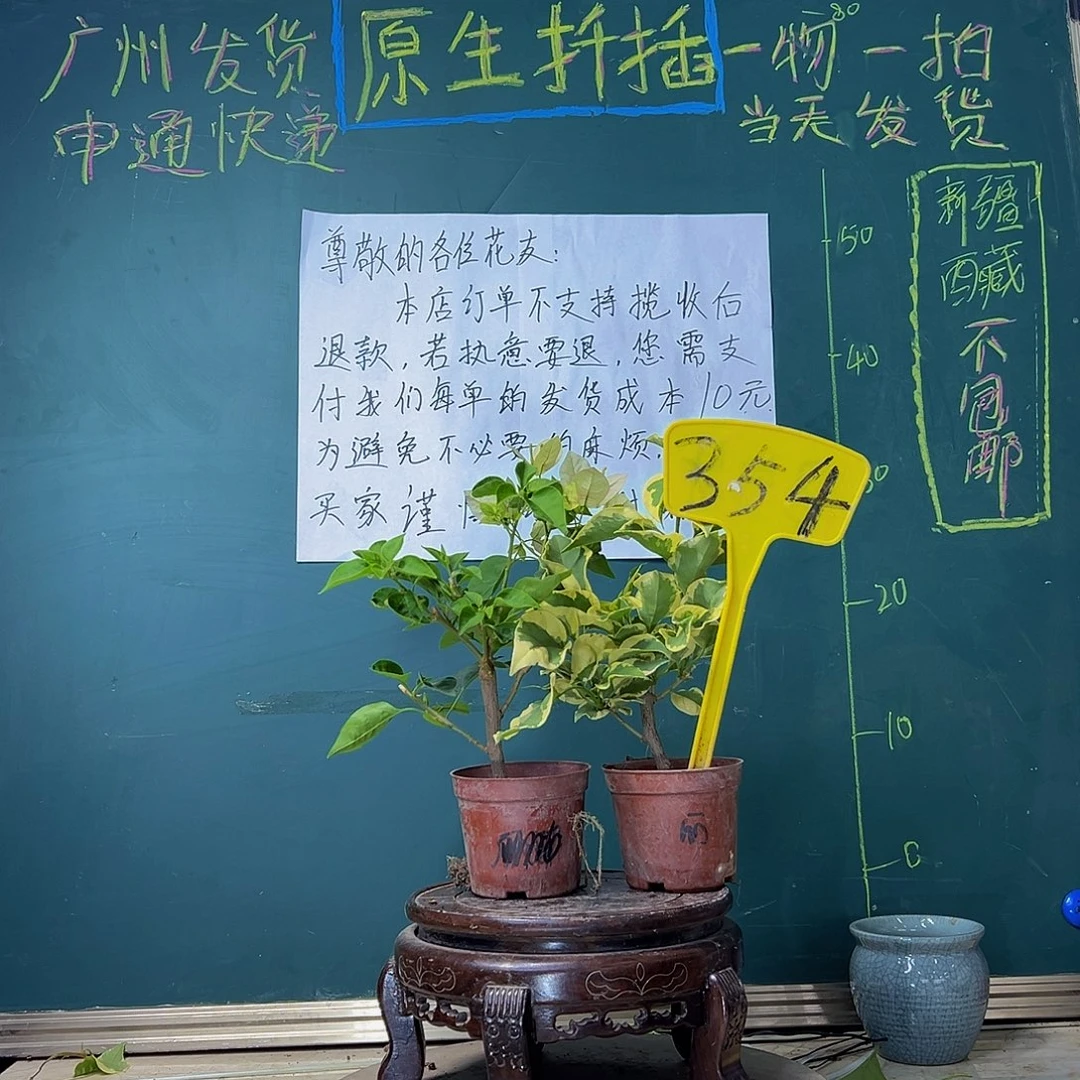 广州发货
申通快递
原生扦插
一物一拍
当天发货
新疆
西藏
不包邮
尊敬的各位花友:
本店订单不支持揽收后
退款,若执意要退,您需支
付我们每单的发货成本10元
为避免不必要的麻烦.
买家谨
354
50
40
30
20
10
0